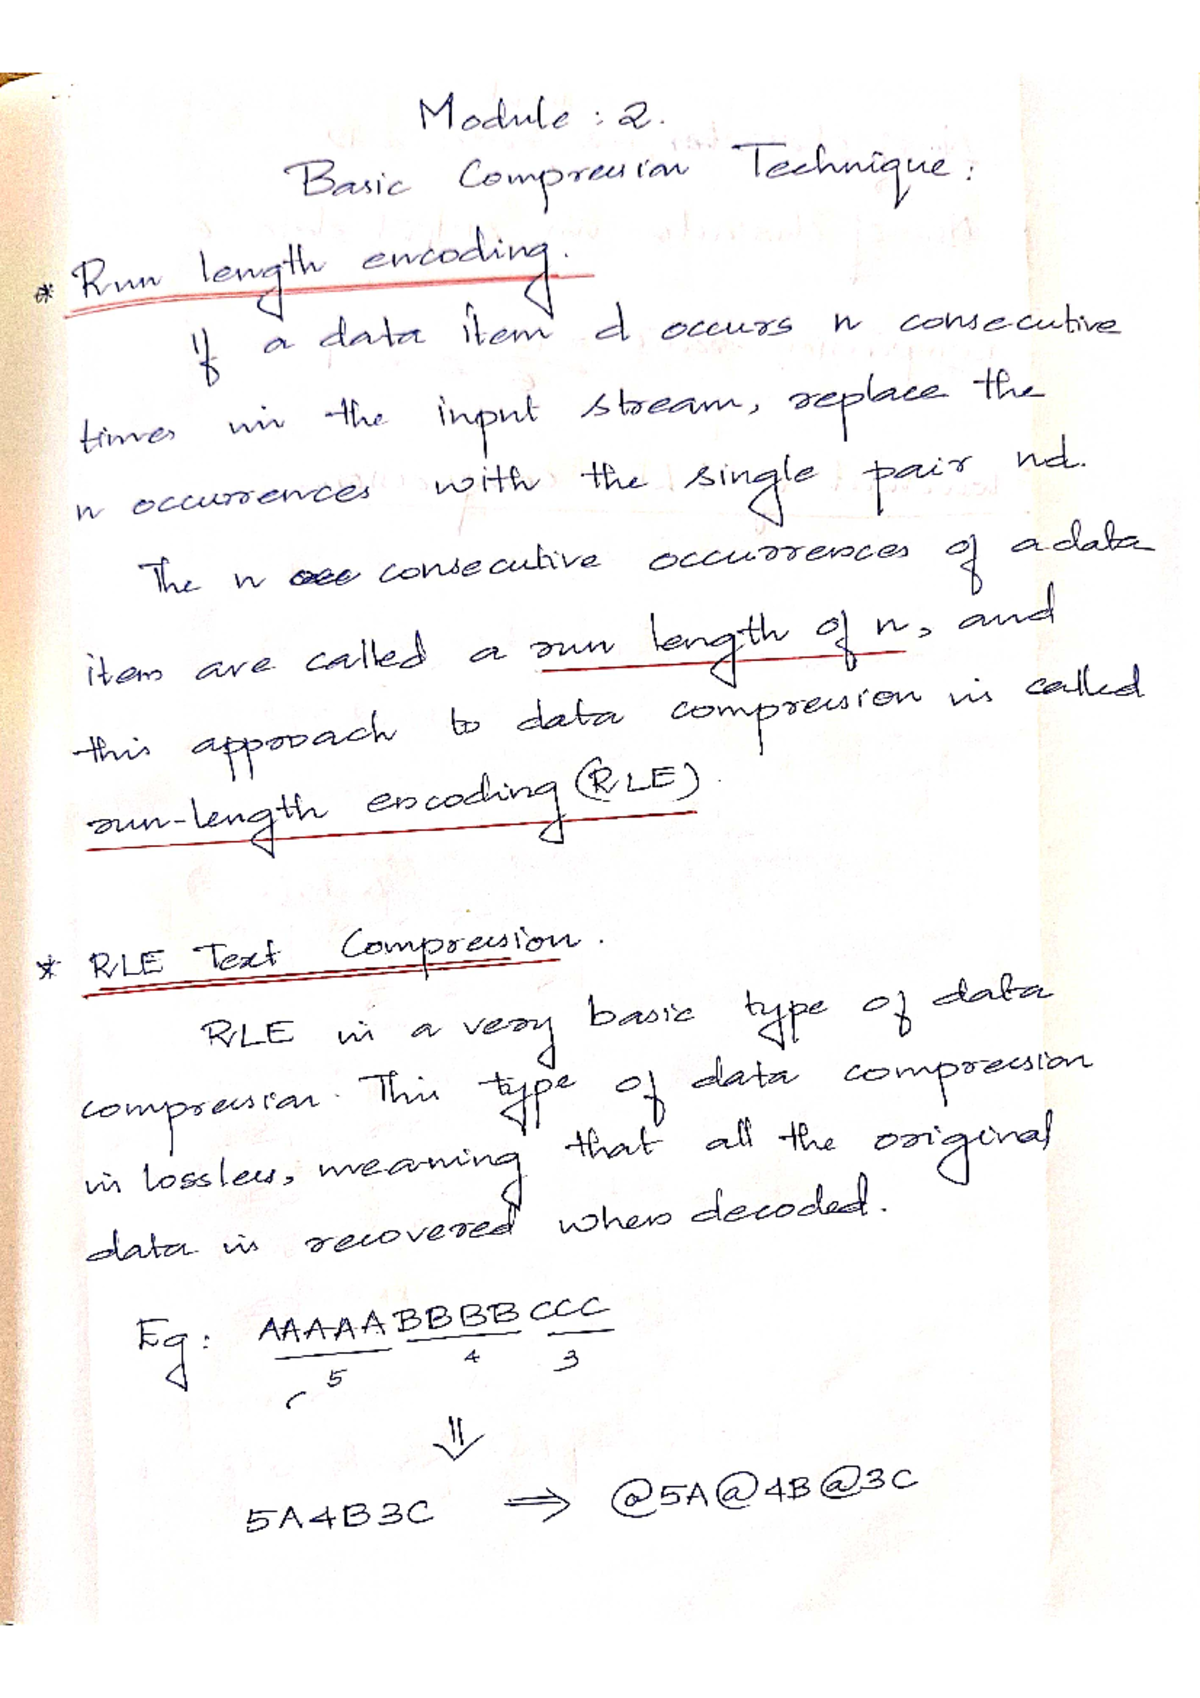 Module : 2.
Basic Compression Technique :
* Run length encoding.
If a data item d occurs n consecutive
times in the input stream, replace the
n occurrences with the single pair nd.
The n occ consecutive occurrences of a data
item are called a run length of n, and
this approach to data compression is called
run-length encoding (RLE).
* RLE Text Compression.
RLE is a very basic type of data
compression. This type of data compression
is lossless, meaning that all the original
data is recovered when decoded.
Eg : AAAAABBBBCCC
5 4 3
⇓
5A4B3C ⇒ @5A@4B@3C